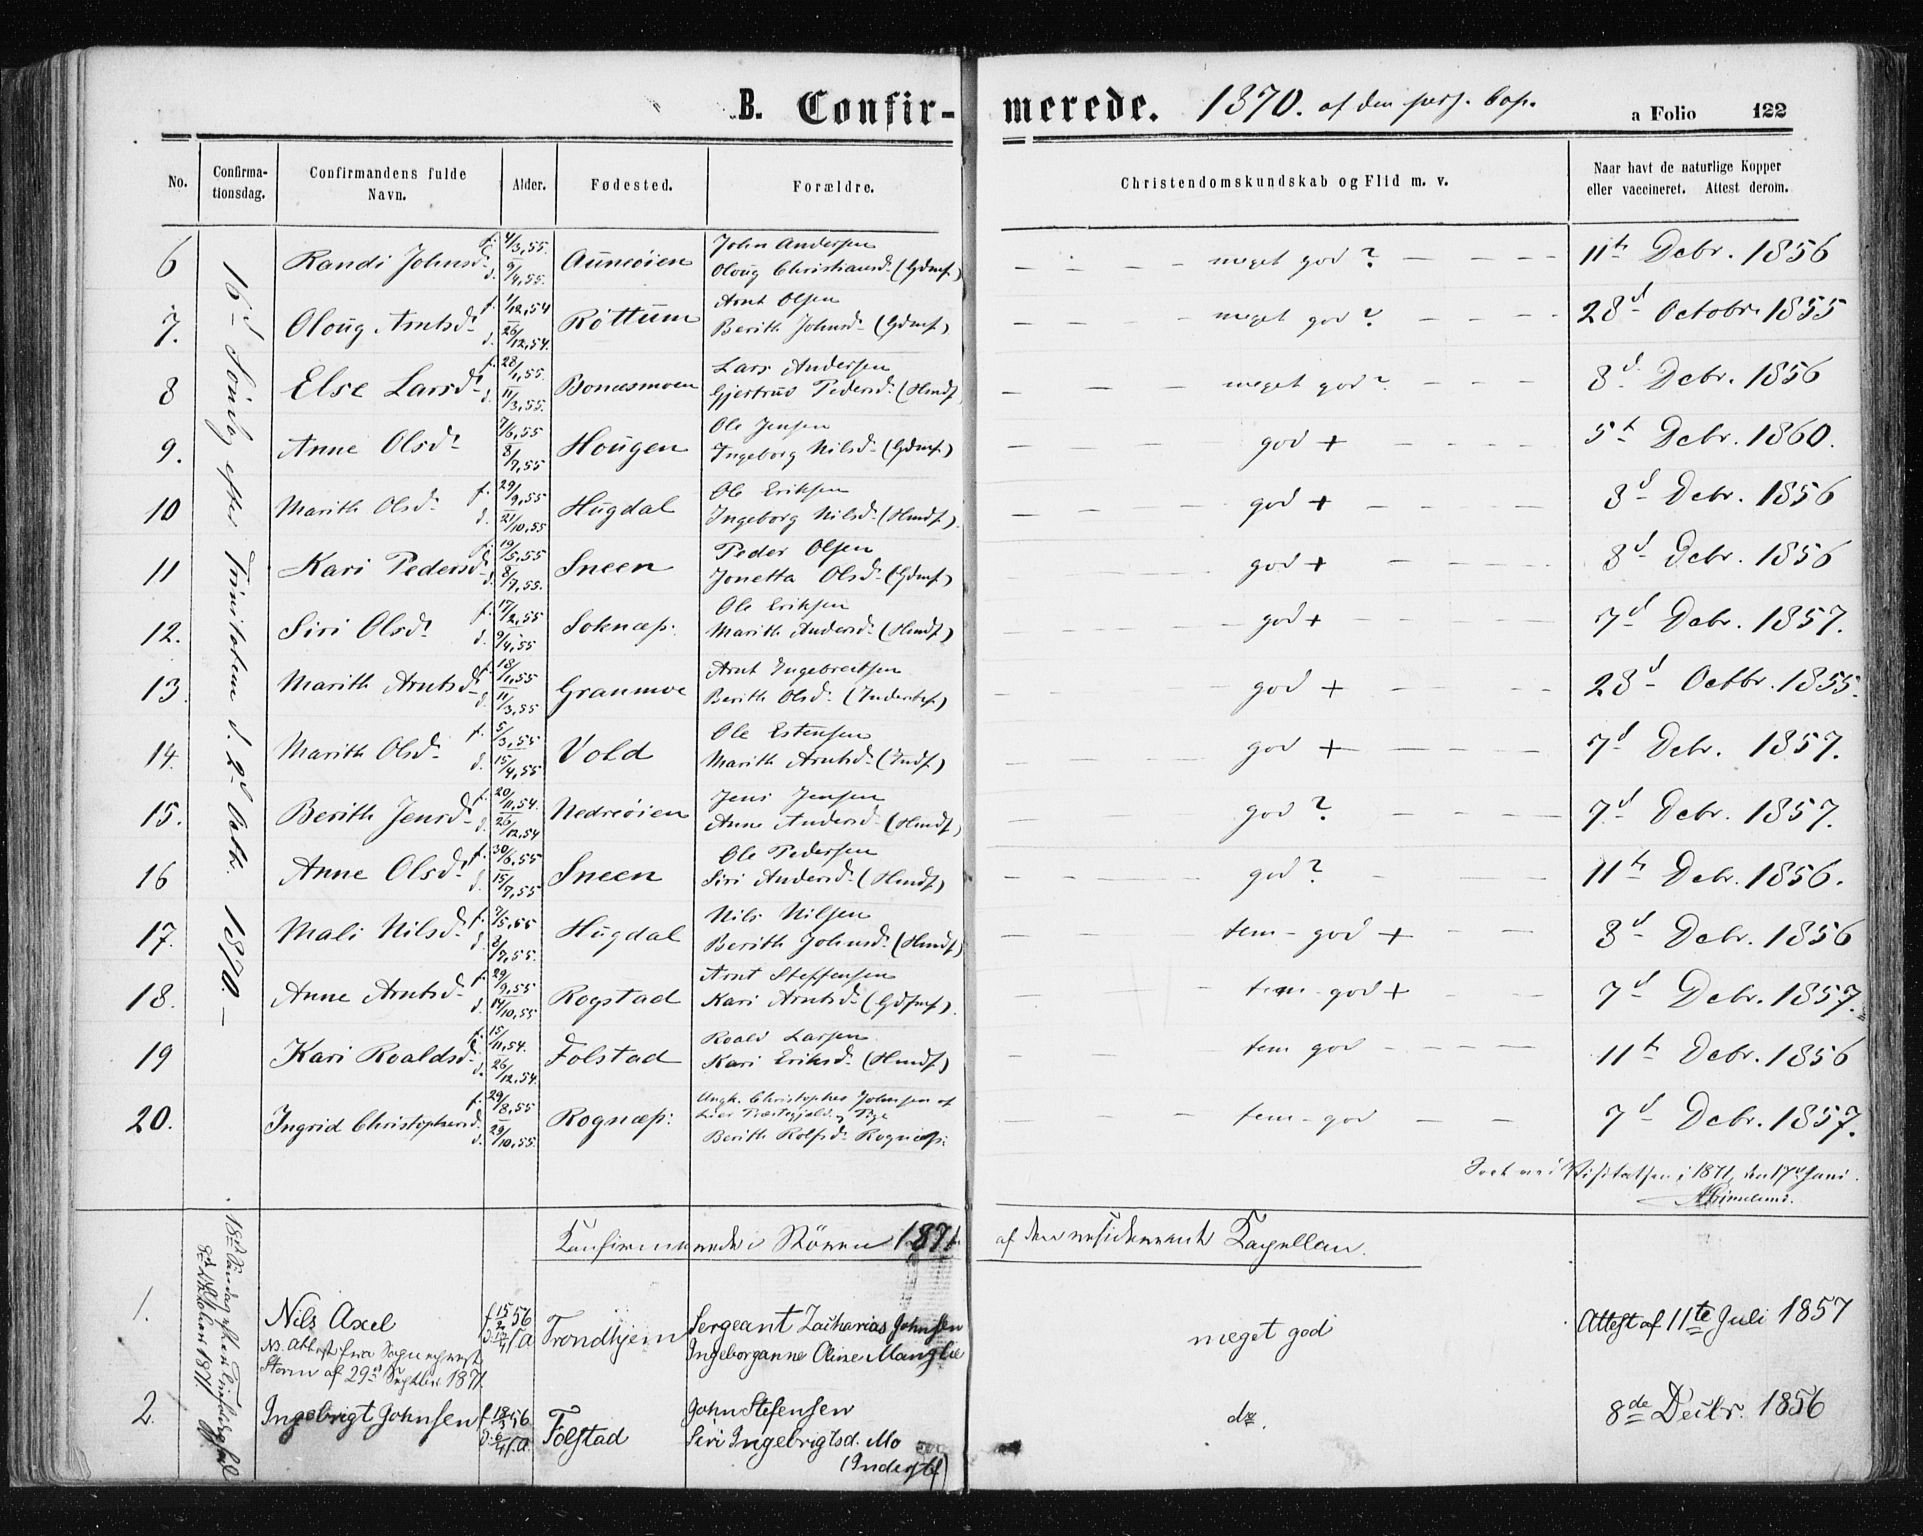 B. Confir- merede. 1870. af den pers. Cap. a Folio 122
No. Confirma-tionsdag. Confirmandens fulde Navn. Alder. Fødested. Forældre. Christendomskundskab og Flid m. v. Naar havt de naturlige Kopper eller vaccineret. Attest derom.
16d Søndag efter Trinitatem d. 2d Octb. 1870.
6 Randi Johnsd. f. 4/3,55. d. 9/4,55. Auneøien John Andersen
Oloug Christiansd. (Gdmf.) meget god? 11te Debr. 1856
7. Oloug Arntsd. f. 1/12,54 d. 26/12,54. Røttum Arnt Olsen
Berith Johnsd. (Gdmf.) meget god? 28d Octobr. 1855
8 Else Larsd. f. 28/1,55. d. 11/3,55. Bonæsmoen Lars Andersen
Gjertrud Pedersd. (Hmdf. meget god? 8d Debr. 1856
9. Anne Olsd. 7/6,55 8/7,55 Hougen Ole Jensen
Ingeborg Nilsd. (Gdmf.) god + 5te Debr. 1860.
10 Marith Olsd. f. 29/9,55 d. 21/10,55 Hugdal Ole Eriksen
Ingeborg Nilsd. (Hmdf.) god + 8d Debr. 1856
11 Kari Pedersd. f. 19/5,55 d. 8/7,55. Sneen Peder Olsen
Jonetta Olsd. (Gdmf.) god + 8d Debr. 1856
12. Siri Olsd. f. 17/2,55 d. 9/4,55 Soknæs: Ole Eriksen
Marith Andersd. (Hmdf.) god + 7d Debr. 1857.
13. Marith Arntsd. f. 18/1,55 d. 11/3,55 Granmoe Arnt Engebrectsen
Berith Olsd. (Inderstf.) god + 28d Octbr. 1855.
14. Marith Olsd. f. 5/3,55 d. 15/4,55 Vold Ole Estensen
Marith Arntsd. (Indf.) god + 7d Debr. 1857.
15. Berith Jensd. f. 20/11,54. d. 26/12,54 Nedreøien Jens Jensen
Anne Andersd. (Hmdf.) god? 7d Debr. 1857.
16 Anne Olsd. f. 30/6,55 d. 15/7,55 Sneen Ole Pedersen
Siri Andersd. (Hmdf.) god? 11te Debr. 1856.
17. Mali Nilsd. f. 7/5,55 d. 8/7,55. Hugdal Nils Nilsen
Berith Johnsd. (Hmdf.) tem-god + 8d Debr. 1856
18. Anne Arntsd. f. 29/9,55 d. 14/10,55 Rogstad Arnt Steffensen
Kari Arntsd. (Gdmf.) tem-god + 7d Debr. 1857.
19 Kari Roaldsd. f. 15/11,54. d. 26/12,54. Folstad Roald Larsen
Kari Eriksd. (Hmdf.) tem god 11te Debr. 1856
20. Ingrid Christophersd. f. 29/8,55 d. 29/10,55. Rognæs: Ungk. Christopher Johnsen af
Lier Præstegjeld og Bye
Berith Rolfsd. Rognæs: tem-god 7d Debr. 1857.
Visitatsen i 1871, den 17de Juni.
Konfirmerede i Støren 1871. af den residerende Kapellan.
18de Søndag efter Trinitatis
8de Oktober 1871.
1. Nils Axel f. 15/2 56 Trondhjem Sergeant Zacharias Johnsen
Ingeborganne Oline Manglie meget god Attest af 11te Juli 1857
NB. Attest fra Sogneprest
Storm af 29de Septbr. 1871.
2. Ingebrigt Johnsen f. 18/3 56. Folstad John Stefensen
Siri Ingebrigtsd. Mo
(Inderstf) do. 8de Decbr. 1856